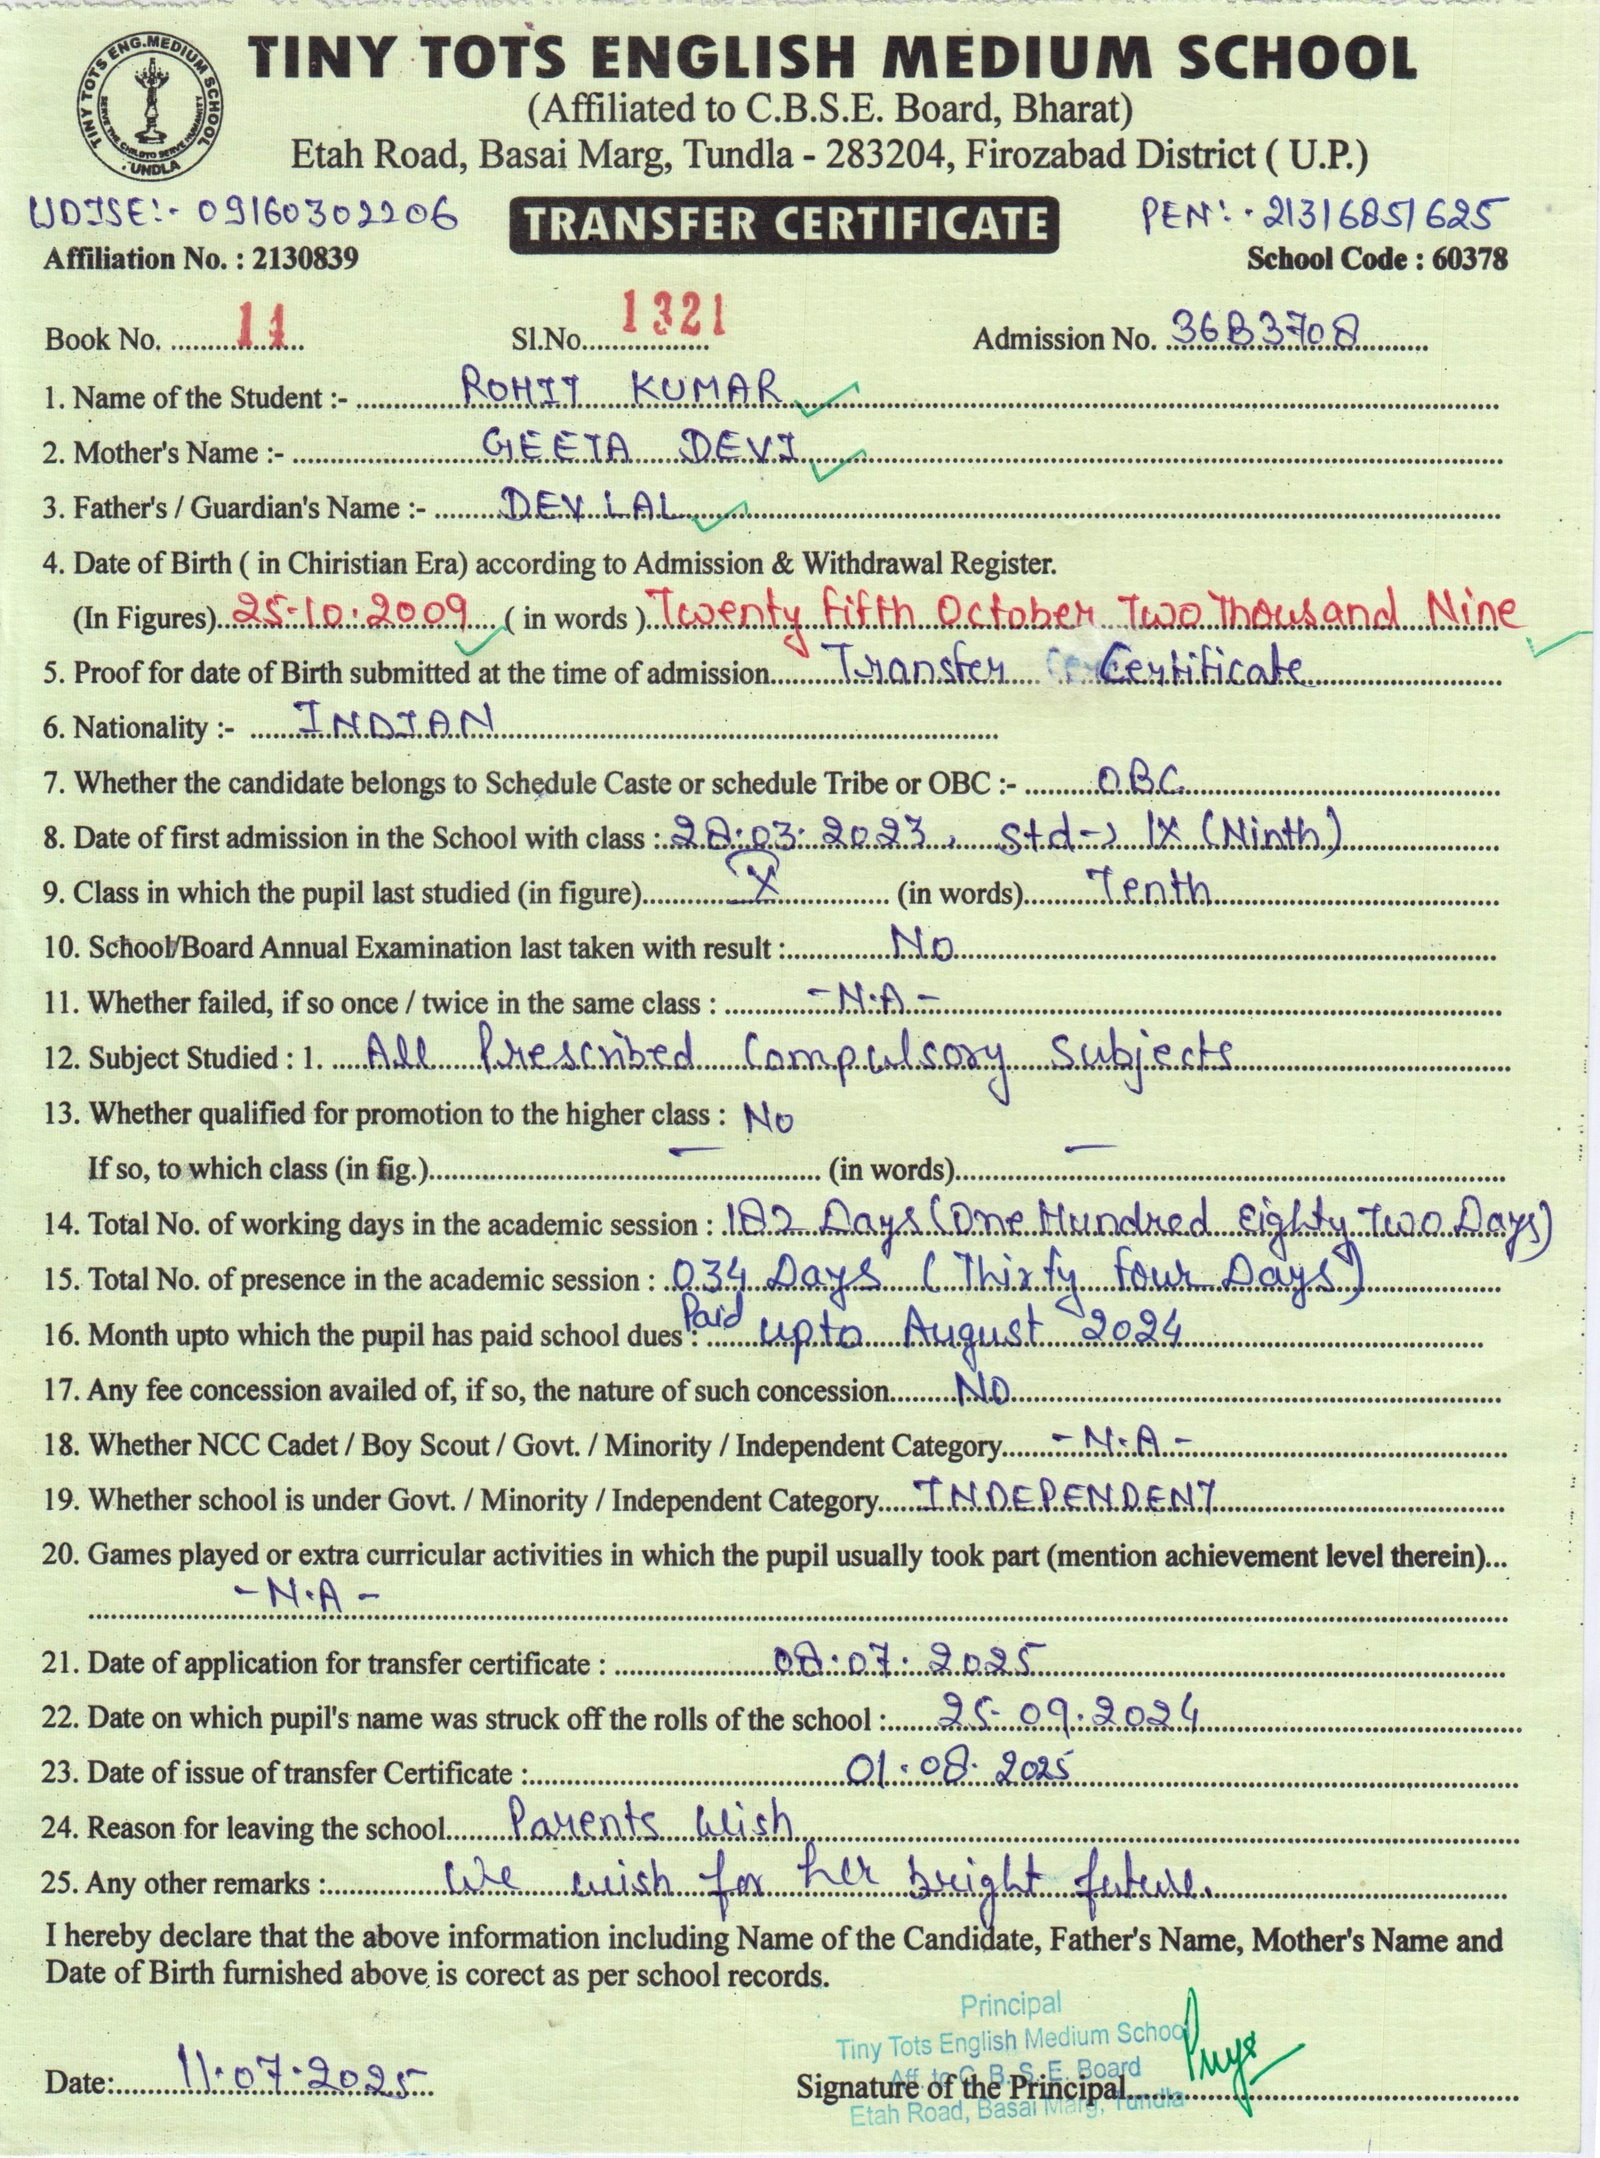 TINY TOTS ENG.MEDIUM SCHOOL
TUNDLA
TINY TOTS ENGLISH MEDIUM SCHOOL
(Affiliated to C.B.S.E. Board, Bharat)
Etah Road, Basai Marg, Tundla - 283204, Firozabad District ( U.P.)
UDISE:- 09160302206
TRANSFER CERTIFICATE
PEN:- 21316851625
Affiliation No. : 2130839
School Code : 60378
Book No. 11 Sl.No. 1321 Admission No. 36B3708
1. Name of the Student :- ROHIT KUMAR
2. Mother's Name :- GEETA DEVI
3. Father's / Guardian's Name :- DEV LAL
4. Date of Birth ( in Chiristian Era) according to Admission & Withdrawal Register.
(In Figures) 25-10-2009 ( in words ) Twenty Fifth October Two Thousand Nine
5. Proof for date of Birth submitted at the time of admission Transfer Certificate
6. Nationality :- INDIAN
7. Whether the candidate belongs to Schedule Caste or schedule Tribe or OBC :- OBC
8. Date of first admission in the School with class : 28.03.2023, Std-> IX (Ninth)
9. Class in which the pupil last studied (in figure) X (in words) Tenth
10. School/Board Annual Examination last taken with result : No
11. Whether failed, if so once / twice in the same class : -N.A-
12. Subject Studied : 1. All Prescribed Compulsory Subjects
13. Whether qualified for promotion to the higher class : No
If so, to which class (in fig.) — (in words) —
14. Total No. of working days in the academic session : 182 Days (One Hundred Eighty Two Days)
15. Total No. of presence in the academic session : 034 Days (Thirty Four Days)
16. Month upto which the pupil has paid school dues : Paid upto August 2024
17. Any fee concession availed of, if so, the nature of such concession NO
18. Whether NCC Cadet / Boy Scout / Govt. / Minority / Independent Category -N.A-
19. Whether school is under Govt. / Minority / Independent Category INDEPENDENT
20. Games played or extra curricular activities in which the pupil usually took part (mention achievement level therein)...
-N.A-
21. Date of application for transfer certificate : 08.07.2025
22. Date on which pupil's name was struck off the rolls of the school : 25-09.2024
23. Date of issue of transfer Certificate : 01.08.2025
24. Reason for leaving the school Parents Wish
25. Any other remarks : We wish for her bright future.
I hereby declare that the above information including Name of the Candidate, Father's Name, Mother's Name and
Date of Birth furnished above is corect as per school records.
Principal
Tiny Tots English Medium School
Aff. to C. B. S. E. Board
Etah Road, Basai Marg, Tundla
Date: 11.07.2025 Signature of the Principal